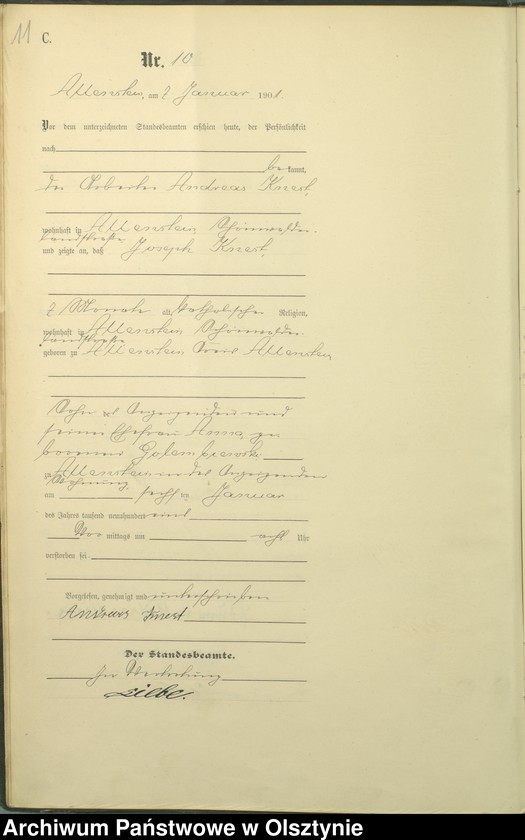 11 C.
Nr. 10
Allenstein, am 7 Januar 1901.
Vor dem unterzeichneten Standesbeamten erschien heute, der Persönlichkeit
nach
bekannt,
der Arbeiter Andreas Knest,
wohnhaft in Allenstein Schönwalder-
landstraße
und zeigte an, daß Joseph Knest,
Monate alt, katholischer Religion,
wohnhaft in Allenstein Schönwalder-
landstraße
geboren zu Allenstein Kreis Allenstein
Sohn des Anzeigenden und
seiner Ehefrau Anna, ge-
borenen Golembiewski
zu Allenstein in des Anzeigenden
Wohnung
am sechsten Januar
des Jahres tausend neunhundert eins
Vor mittags um acht Uhr
verstorben sei.
Vorgelesen, genehmigt und unterschrieben
Andreas Knest
Der Standesbeamte.
In Vertretung
Archiwum Państwowe w Olsztynie